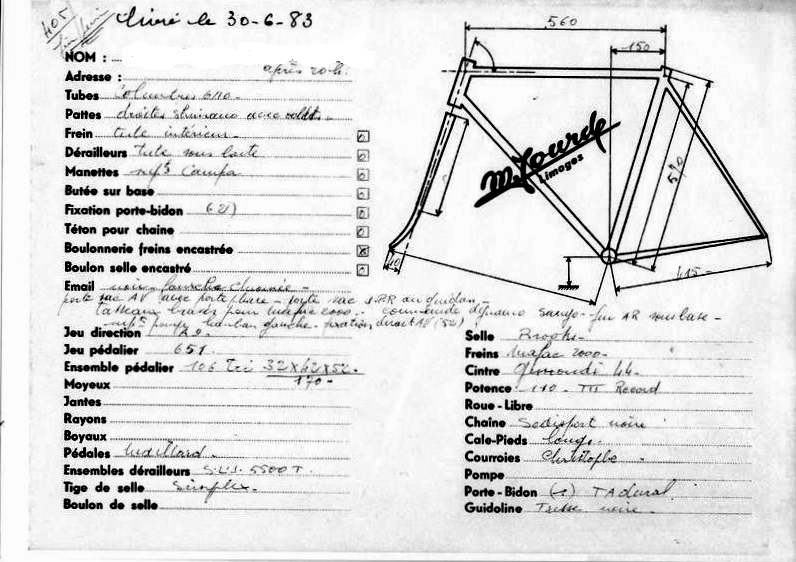 405
Livré le 30-6-83
NOM :
Adresse : après 20 h.
Tubes Columbus 6/10 -
Pattes droites shimano avec
Frein tube intérieur -
Dérailleurs tube sous boite
Manettes Campa
Butée sur base
Fixation porte-bidon 6 (2)
Téton pour chaine
Boulonnerie freins encastrée
Boulon selle encastré
Email noir
porte sac AV avec porte phare - porte sac
pour mafac 2000 - commande dynamo sanyo - sur AR
pompe hauban gauche - fixation
Jeu direction
Jeu pédalier 651
Ensemble pédalier 106 Tri 32x42x52.
170 -
Moyeux
Jantes
Rayons
Boyaux
Pédales Maillard -
Ensembles dérailleurs S.L.J. 5500 T.
Tige de selle Simplex -
Boulon de selle
560
150
570
415 -
40
M. Jourde
Limoges
Selle Brooks -
Freins Mafac 2000 -
Cintre Gimondi 44 -
Potence 110 - TTT Record
Roue - Libre
Chaîne Sedisport noire
Cale-Pieds longs.
Courroies Christophe -
Pompe
Porte - Bidon (2) TA dural
Guidoline Tresse noire -